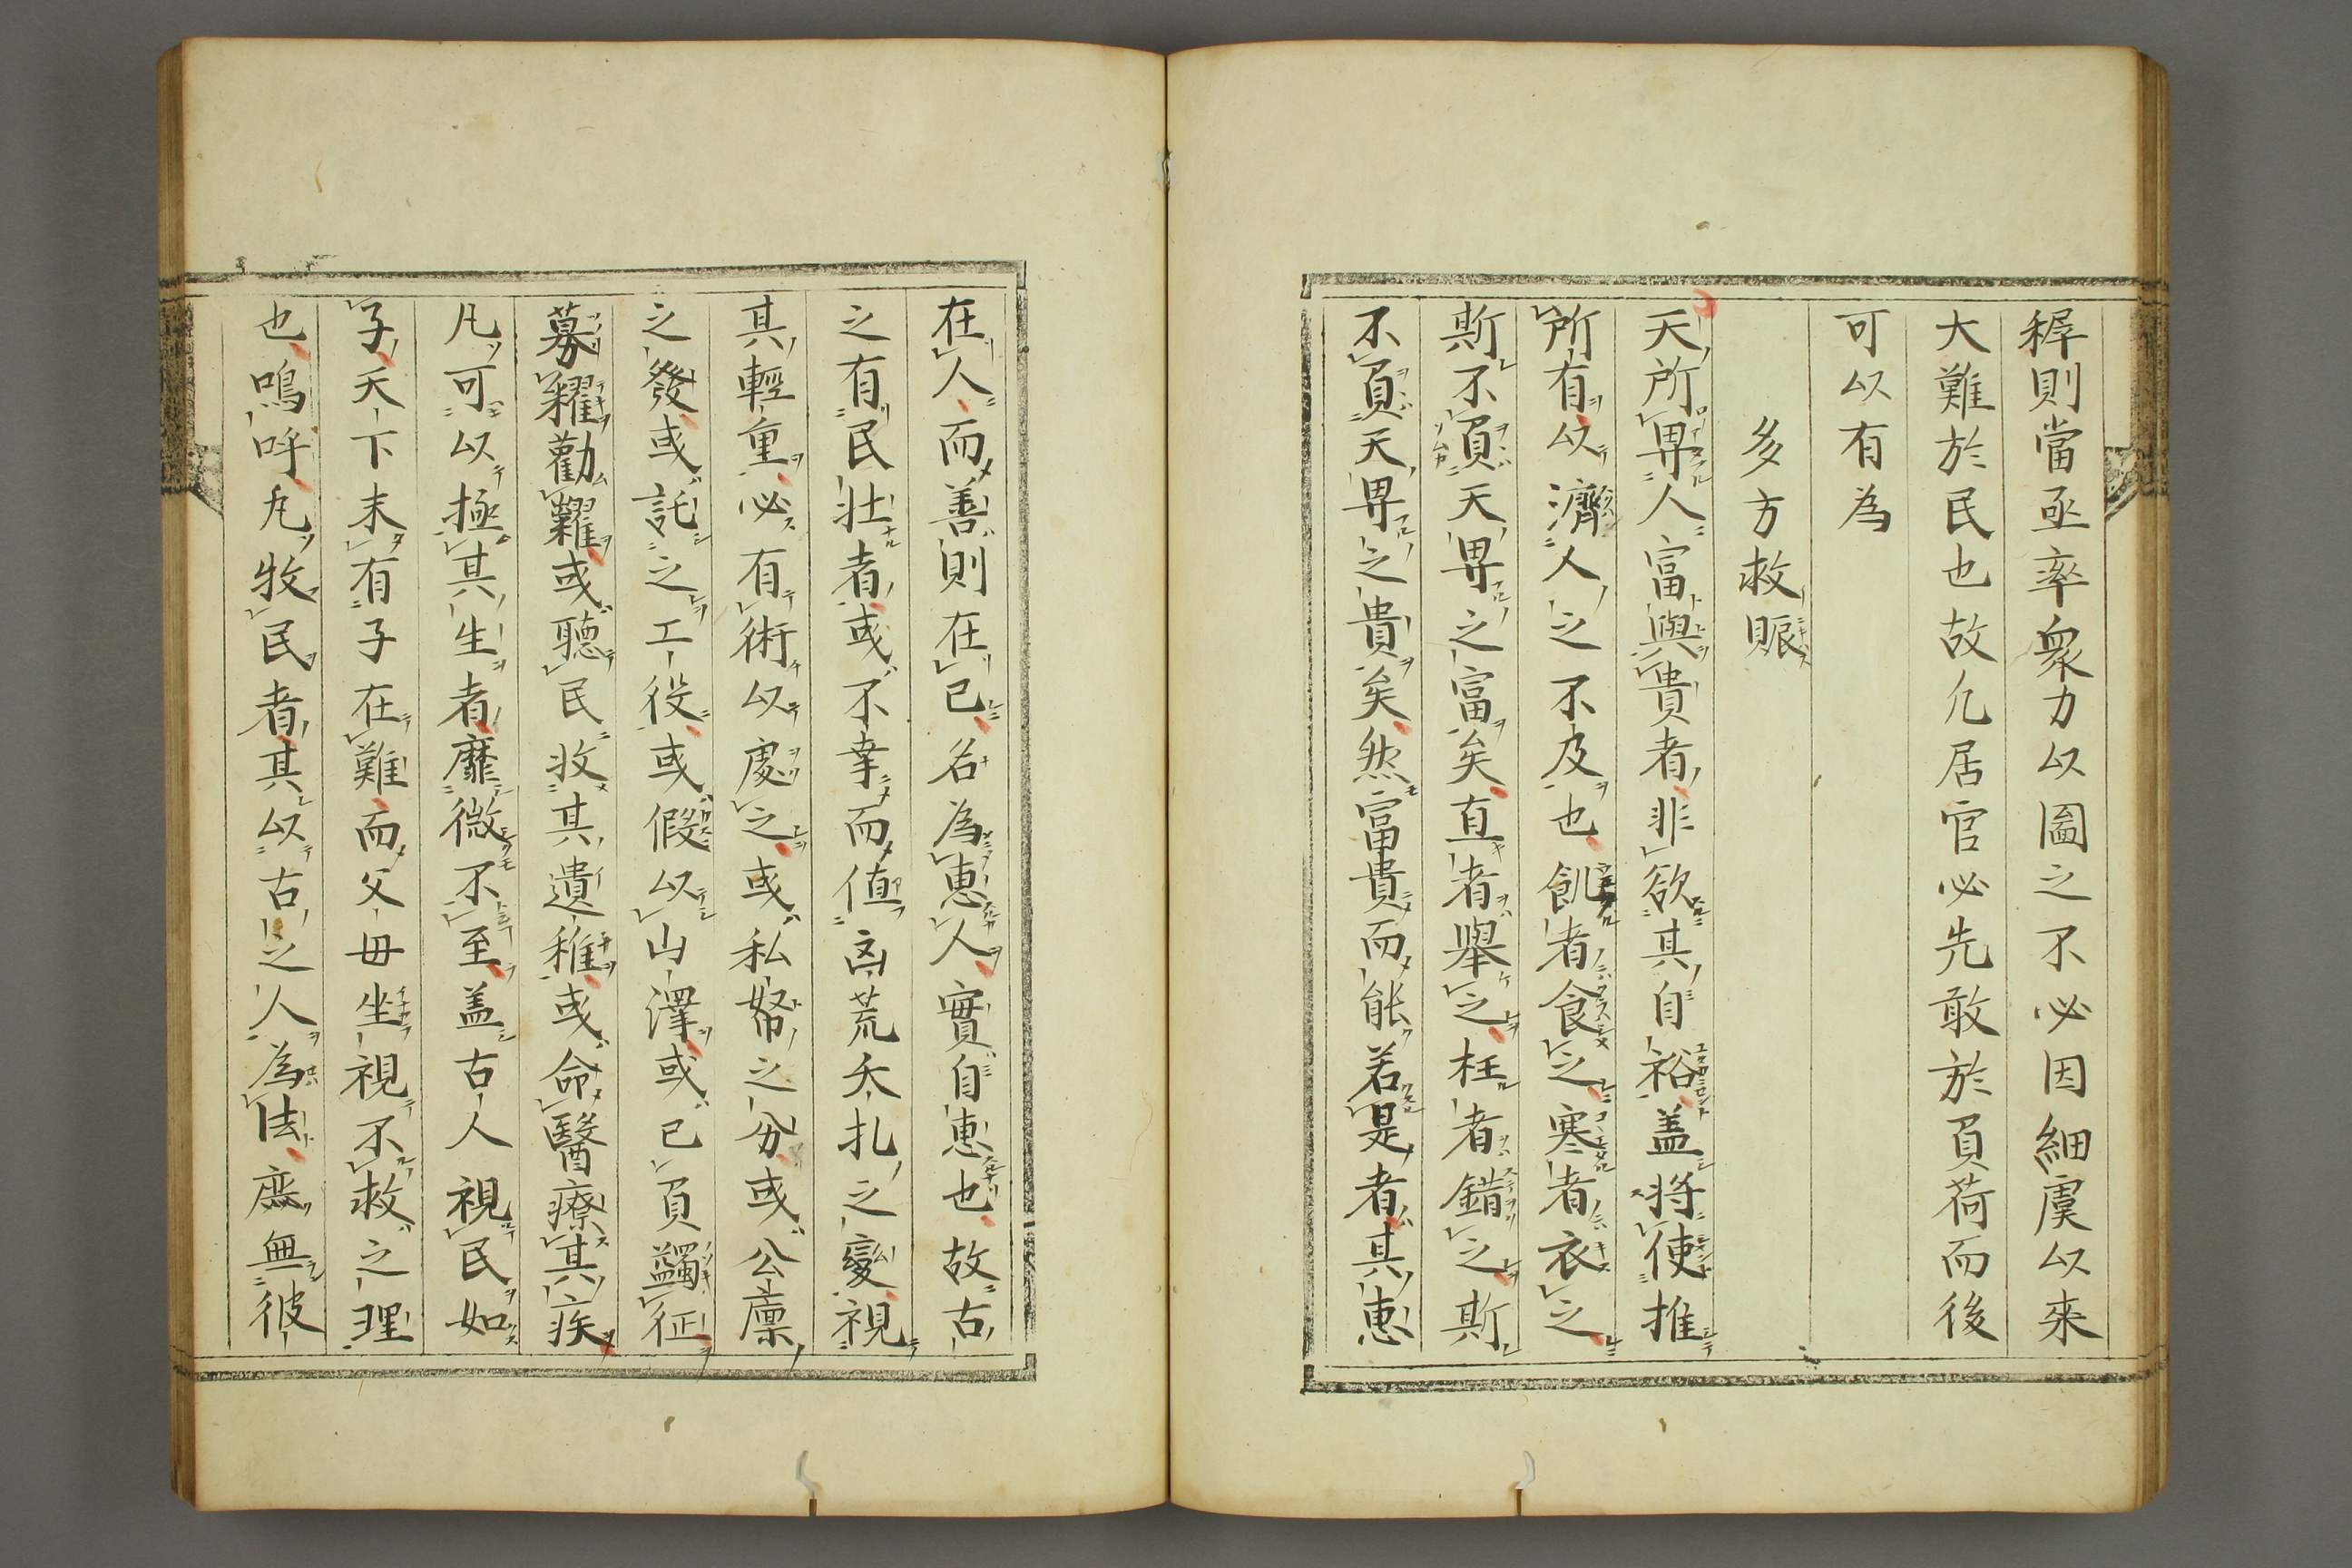 稺則當亟率衆力以圖之不必因細虞以來
大難於民也故凢居官必先敢於負荷而後
可以有為
多方救賑
天所畀人富與貴者非欲其自裕盖将使推
所有以濟人之不及也飢者食之寒者衣之
斯不負天畀之富矣直者舉之枉者錯之斯
不負天畀之貴矣然富貴而能若是者其惠
在人而善則在已名為惠人實自惠也故古
之有民壯者或不幸而值凶荒夭札之變視
其輕重必有術以處之或私帑之分或公廩
之發或託之工役或假以山澤或已負蠲征
募糴勸糶或聽民收其遺稚或命醫療其疾
凡可以極其生者靡微不至盖古人視民如
子天下未有子在難而父母坐視不救之理
也嗚呼凡牧民者其以古之人為法庶無彼